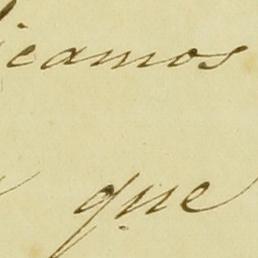 icamos
que